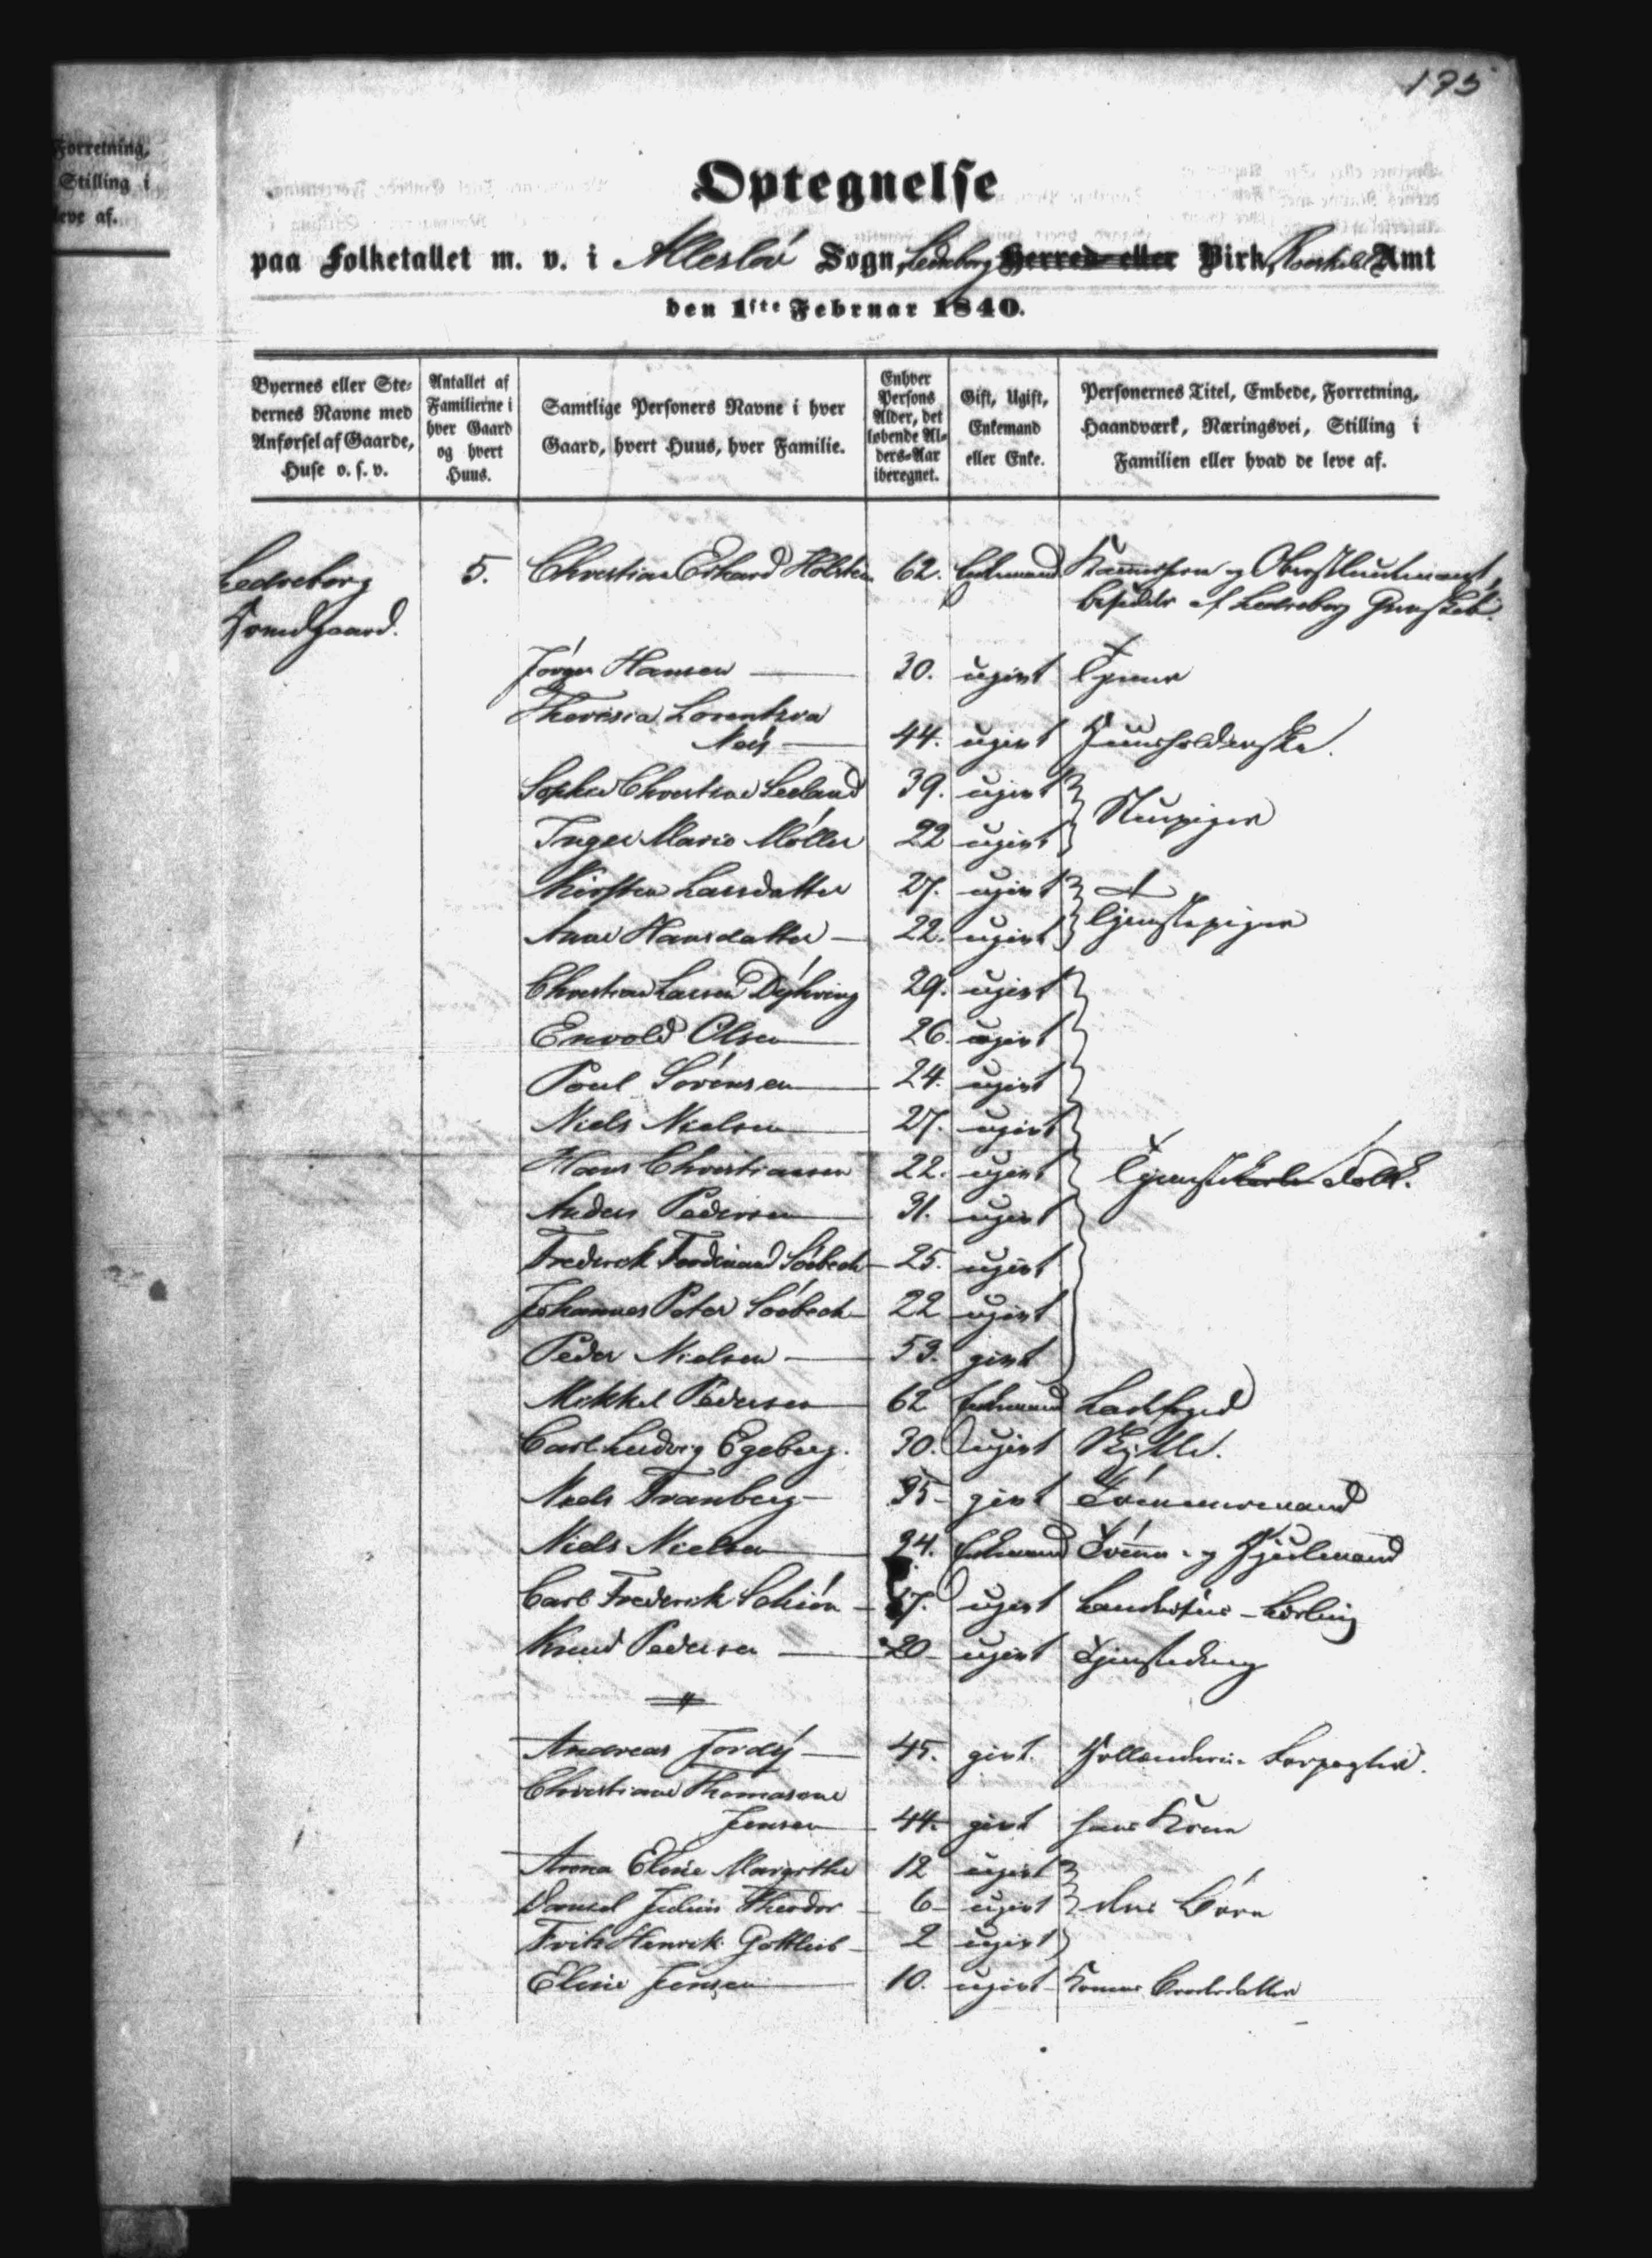 175
Forretning,
Stilling i
leve af.
Optegnelse
paa Folketallet m. v. i Allerslev Sogn, Ledreborg Herred eller Birk, Roeskilde Amt
den 1ste Februar 1840.
Byernes eller Ste-
dernes Navne med
Anførsel af Gaarde,
Huse o. s. v.
Antallet af
Familierne i
hver Gaard
og hvert
Huus.
Samtlige Personers Navne i hver
Gaard, hvert Huus, hver Familie.
Enhver
Persons
Alder, det
løbende Al-
ders-Aar
iberegnet.
Gift, Ugift,
Enkemand
eller Enke.
Personernes Titel, Embede, Forretning,
Haandværk, Næringsvei, Stilling i
Familien eller hvad de leve af.
Ledreborg 5. Christian Edhard Holstein 62. Enkemand Kammerherre og Oberstlieutenant,
Hovedgaard. besidder af Ledreborg Grevskab.
Jørgen Hansen 30. ugivt Tjener
Theresia Lorentzva
44. ugivt Huusholderske.
Sophie Christine Seeland 39. ugivt
Stuepiger
Inger Marie Møller 22 ugivt
Kirsten Larsdatter 27. ugivt
Tjenstepiger
Anne Hansdatter 22. ugivt
Christian Larsen Dyhring 29. ugivt
Envold Olsen 26. ugivt
Poul Sørensen 24. ugivt
Niels Nielsen 27. ugivt
Hans Christiansen 22. ugivt Tjenstekarle Folk.
Anders Pedersen 31. ugivt
Frederik Ferdinand Søebech 25. ugivt
Johannes Peter Søebech 22 ugivt
Peder Nielsen 53. givt
Mikkel Pedersen 62 Enkemand Ladefoged
Carl Ludvig Egeberg. 30. ugivt Skytte.
Niels Tranberg 35 givt Tömmermand
Niels Nielsen 34. Enkemand Tömm- og Hjulmand
Carl Frederik Schiön 17. ugivt Landvæsens-Lærling
Knud Pedersen 20 ugivt Tjenstedreng
Andreas Jordÿ 45. givt. Hollænderie-Forpagter.
Christiane Thomasine
Jensen 44. givt hans Kone
Anna Eline Margrethe 12 ugivt
Daniel Julius Theodor 6 ugivt deres Børn
Frits Henrik Gottlieb 2 ugivt
Eline Jensen 10. ugivt Konens Broderdatter